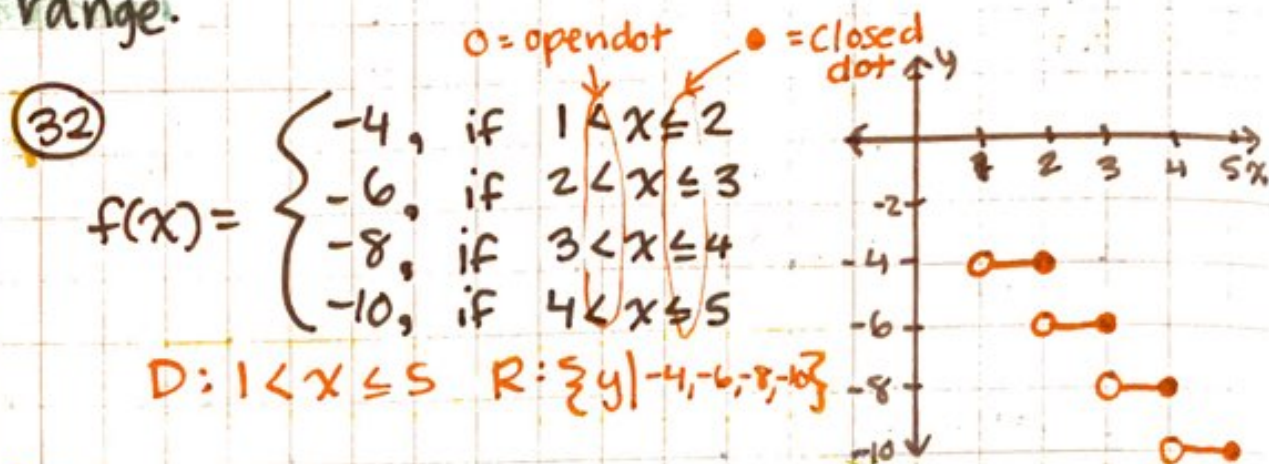 range.
O = open dot ● = Closed dot
32
f(x) = { -4, if 1 < x ≤ 2
-6, if 2 < x ≤ 3
-8, if 3 < x ≤ 4
-10, if 4 < x ≤ 5
D: 1 < x ≤ 5 R: {y|-4,-6,-8,-10}
y
1 2 3 4 5 x
-2
-4
-6
-8
-10